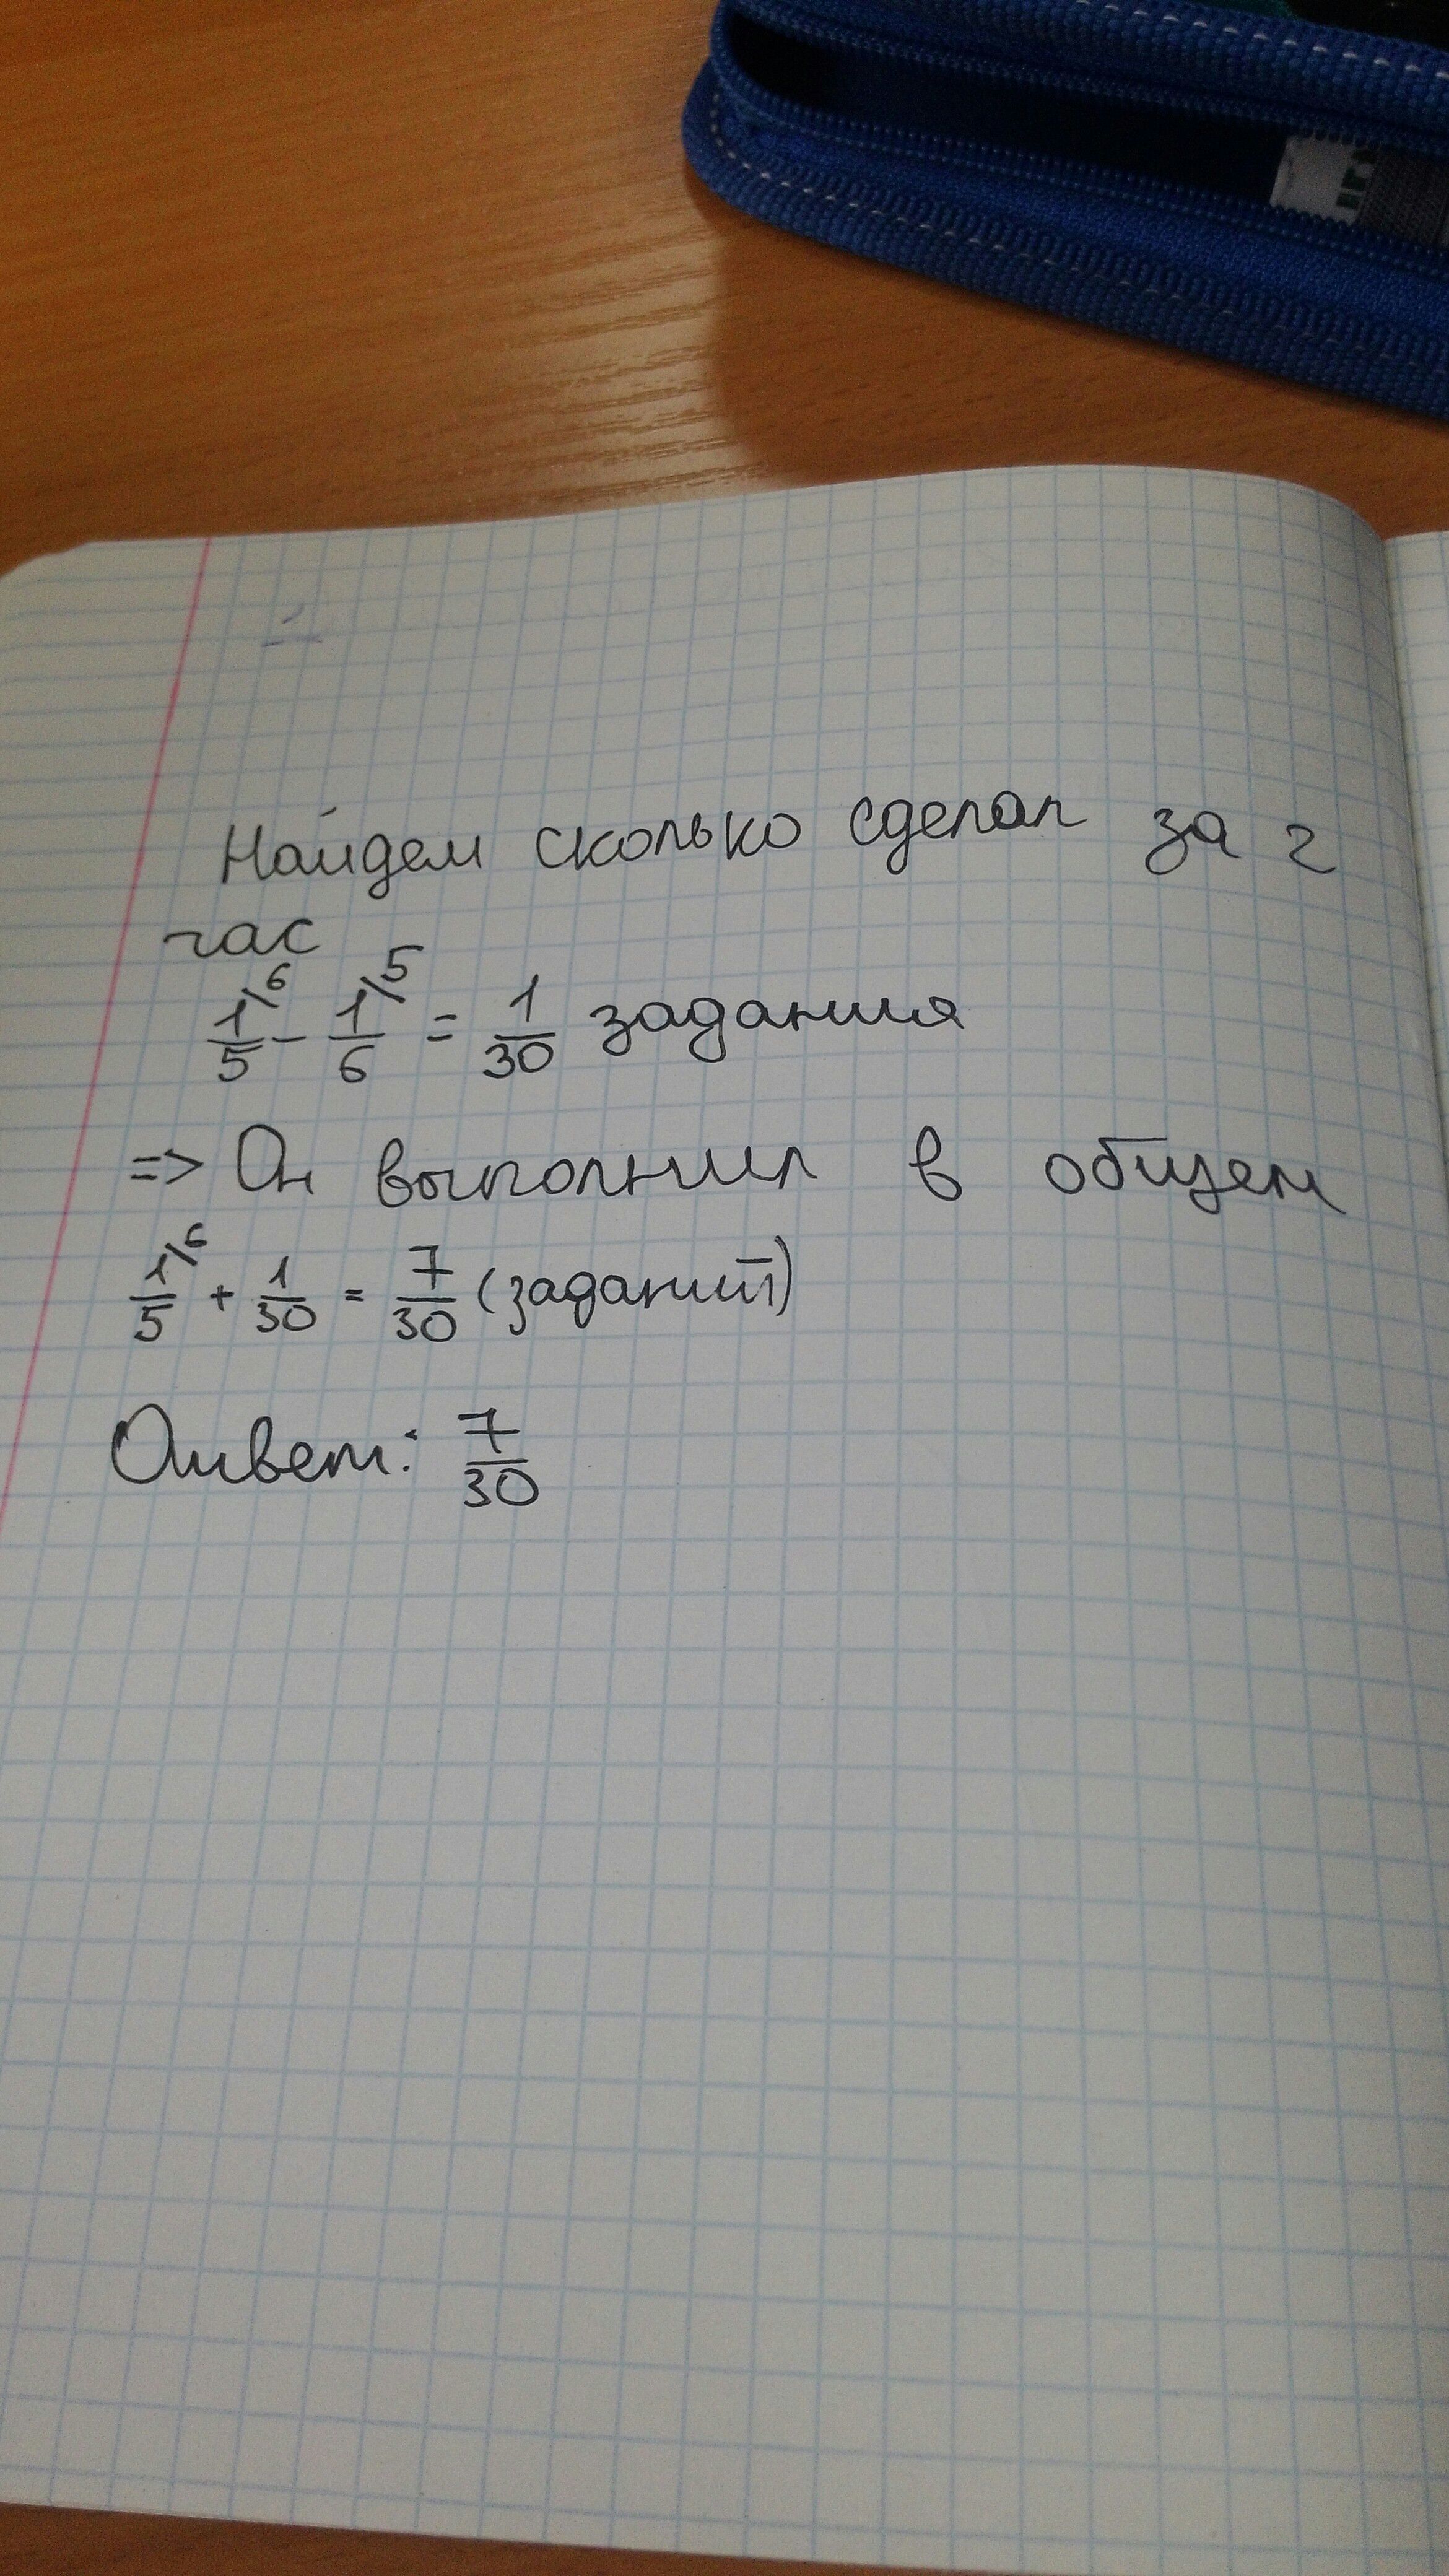 Найдем сколько сделал за 2
час
1\6/5 - 1\5/6 = 1/30 задания
=> Он выполнил в общем
1\6/5 + 1/30 = 7/30 (заданий)
Ответ: 7/30